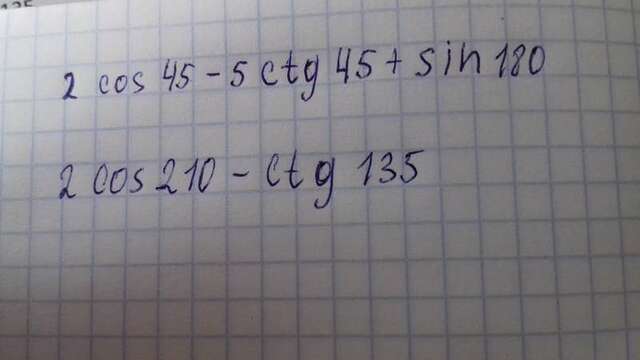 2 cos 45 - 5 ctg 45 + sin 180
2 cos 210 - ctg 135